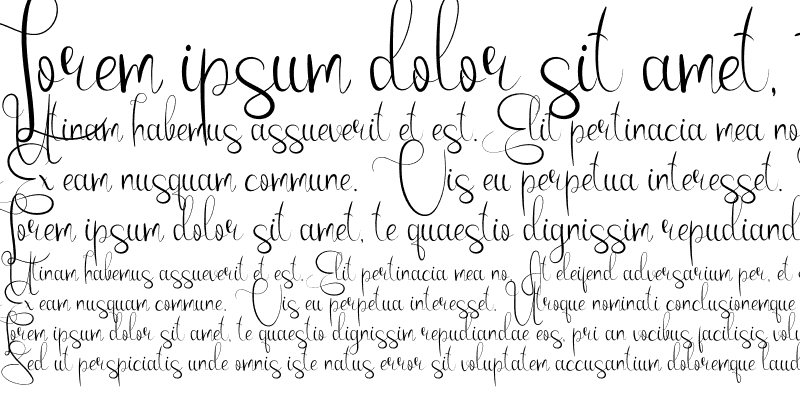 Lorem ipsum dolor sit amet,
Utinam habemus assueverit et est. Elit pertinacia mea no
Ex eam nusquam commune. Vis eu perpetua interesset.
Lorem ipsum dolor sit amet, te quaestio dignissim repudiand
Utinam habemus assueverit et est. Elit pertinacia mea no. At eleifend adversarium per, et
Ex eam nusquam commune. Vis eu perpetua interesset. Utroque nominati conclusionemque
Lorem ipsum dolor sit amet, te quaestio dignissim repudiandae eos, pri an vocibus facilisis volu
Sed ut perspiciatis unde omnis iste natus error sit voluptatem accusantium doloremque laud